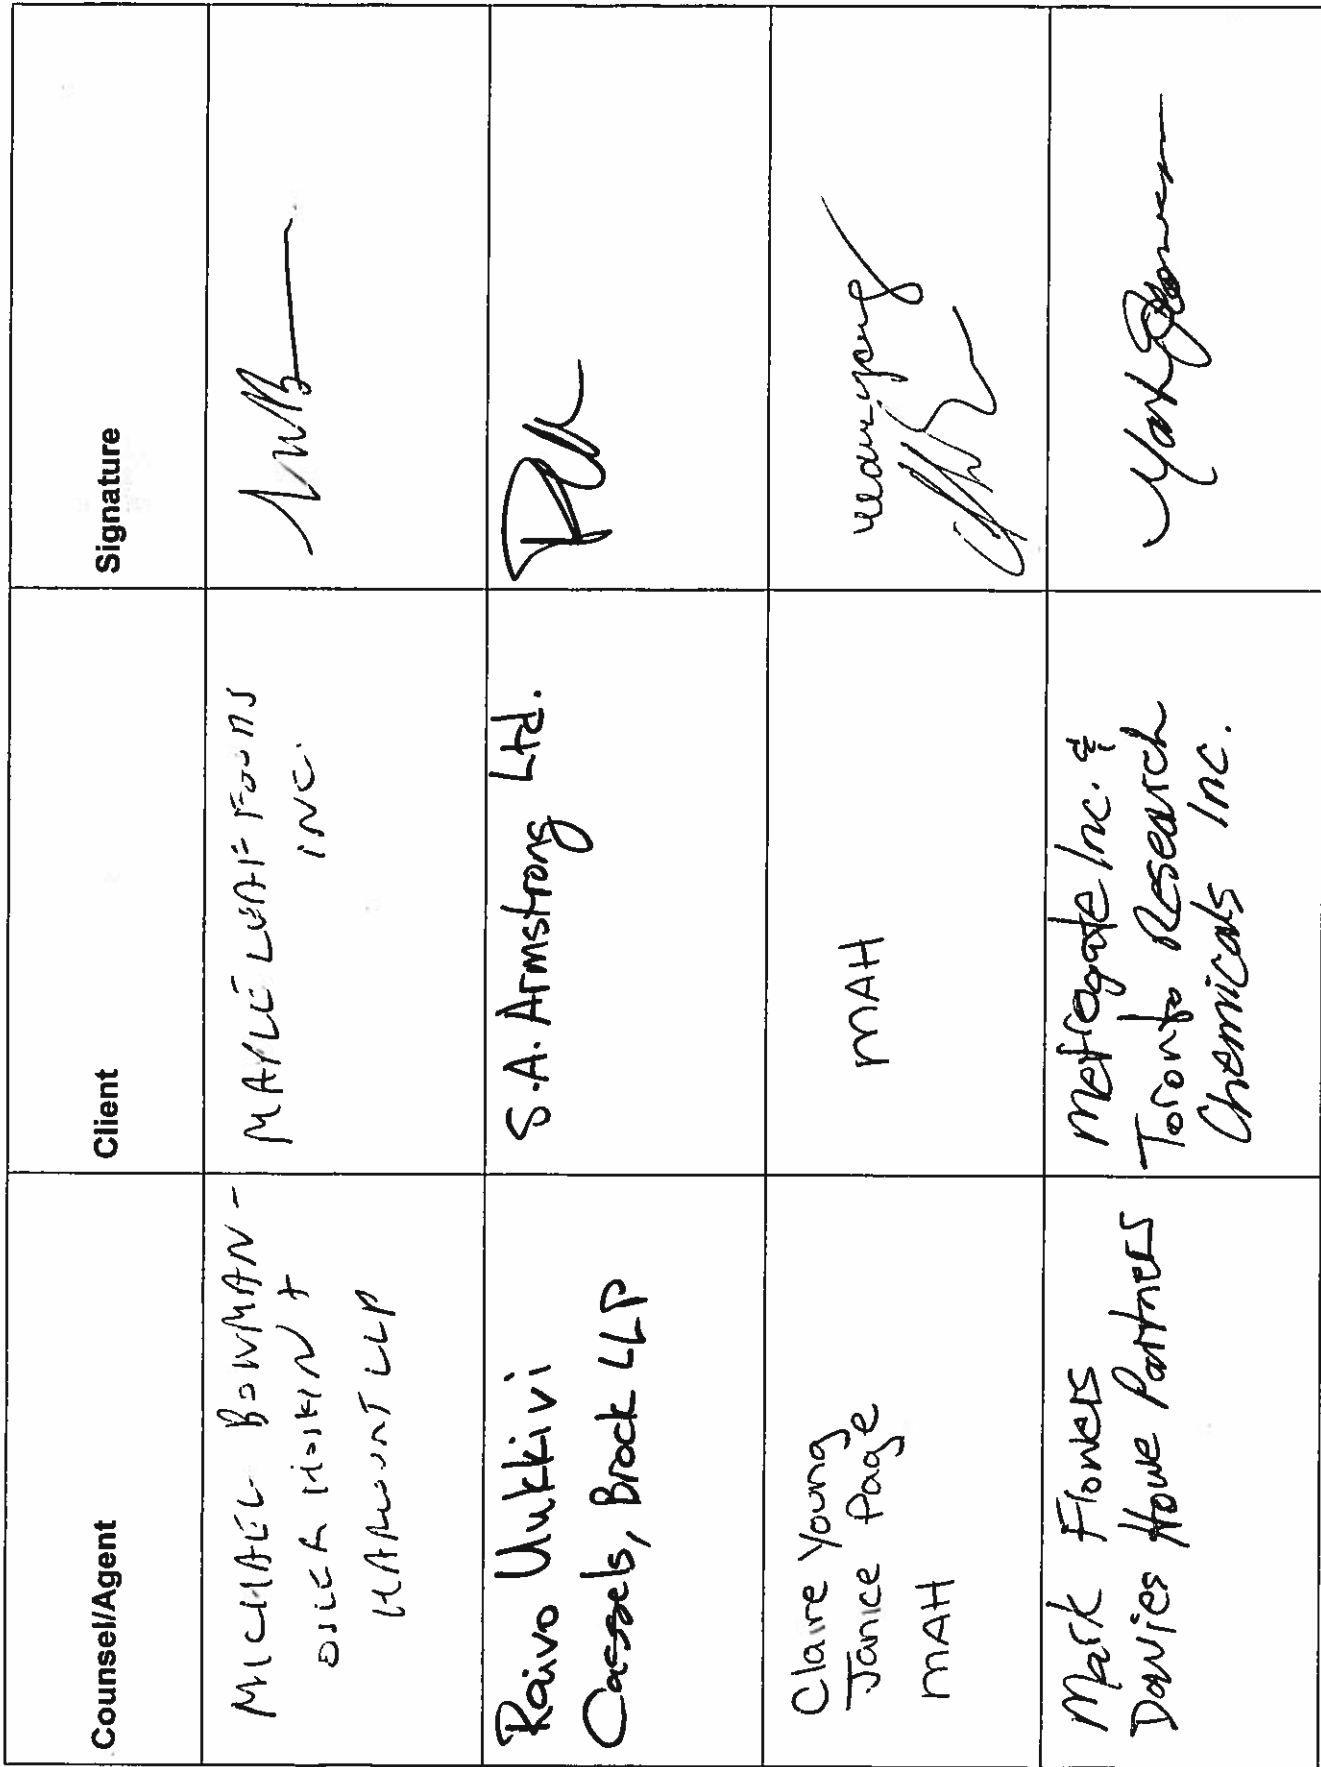 Counsel/Agent
Client
Signature
MICHAEL BOWMAN -
OSLER HOSKIN +
HARCOURT LLP
MAPLE LEAF FOODS
INC.
Raivo Uukkivi
Cassels, Brock LLP
S.A. Armstrong Ltd.
Claire Young
Janice Page
MAH
MAH
Mark Flowers
Davies Howe Partners
Metrogate Inc. &
Toronto Research
Chemicals Inc.